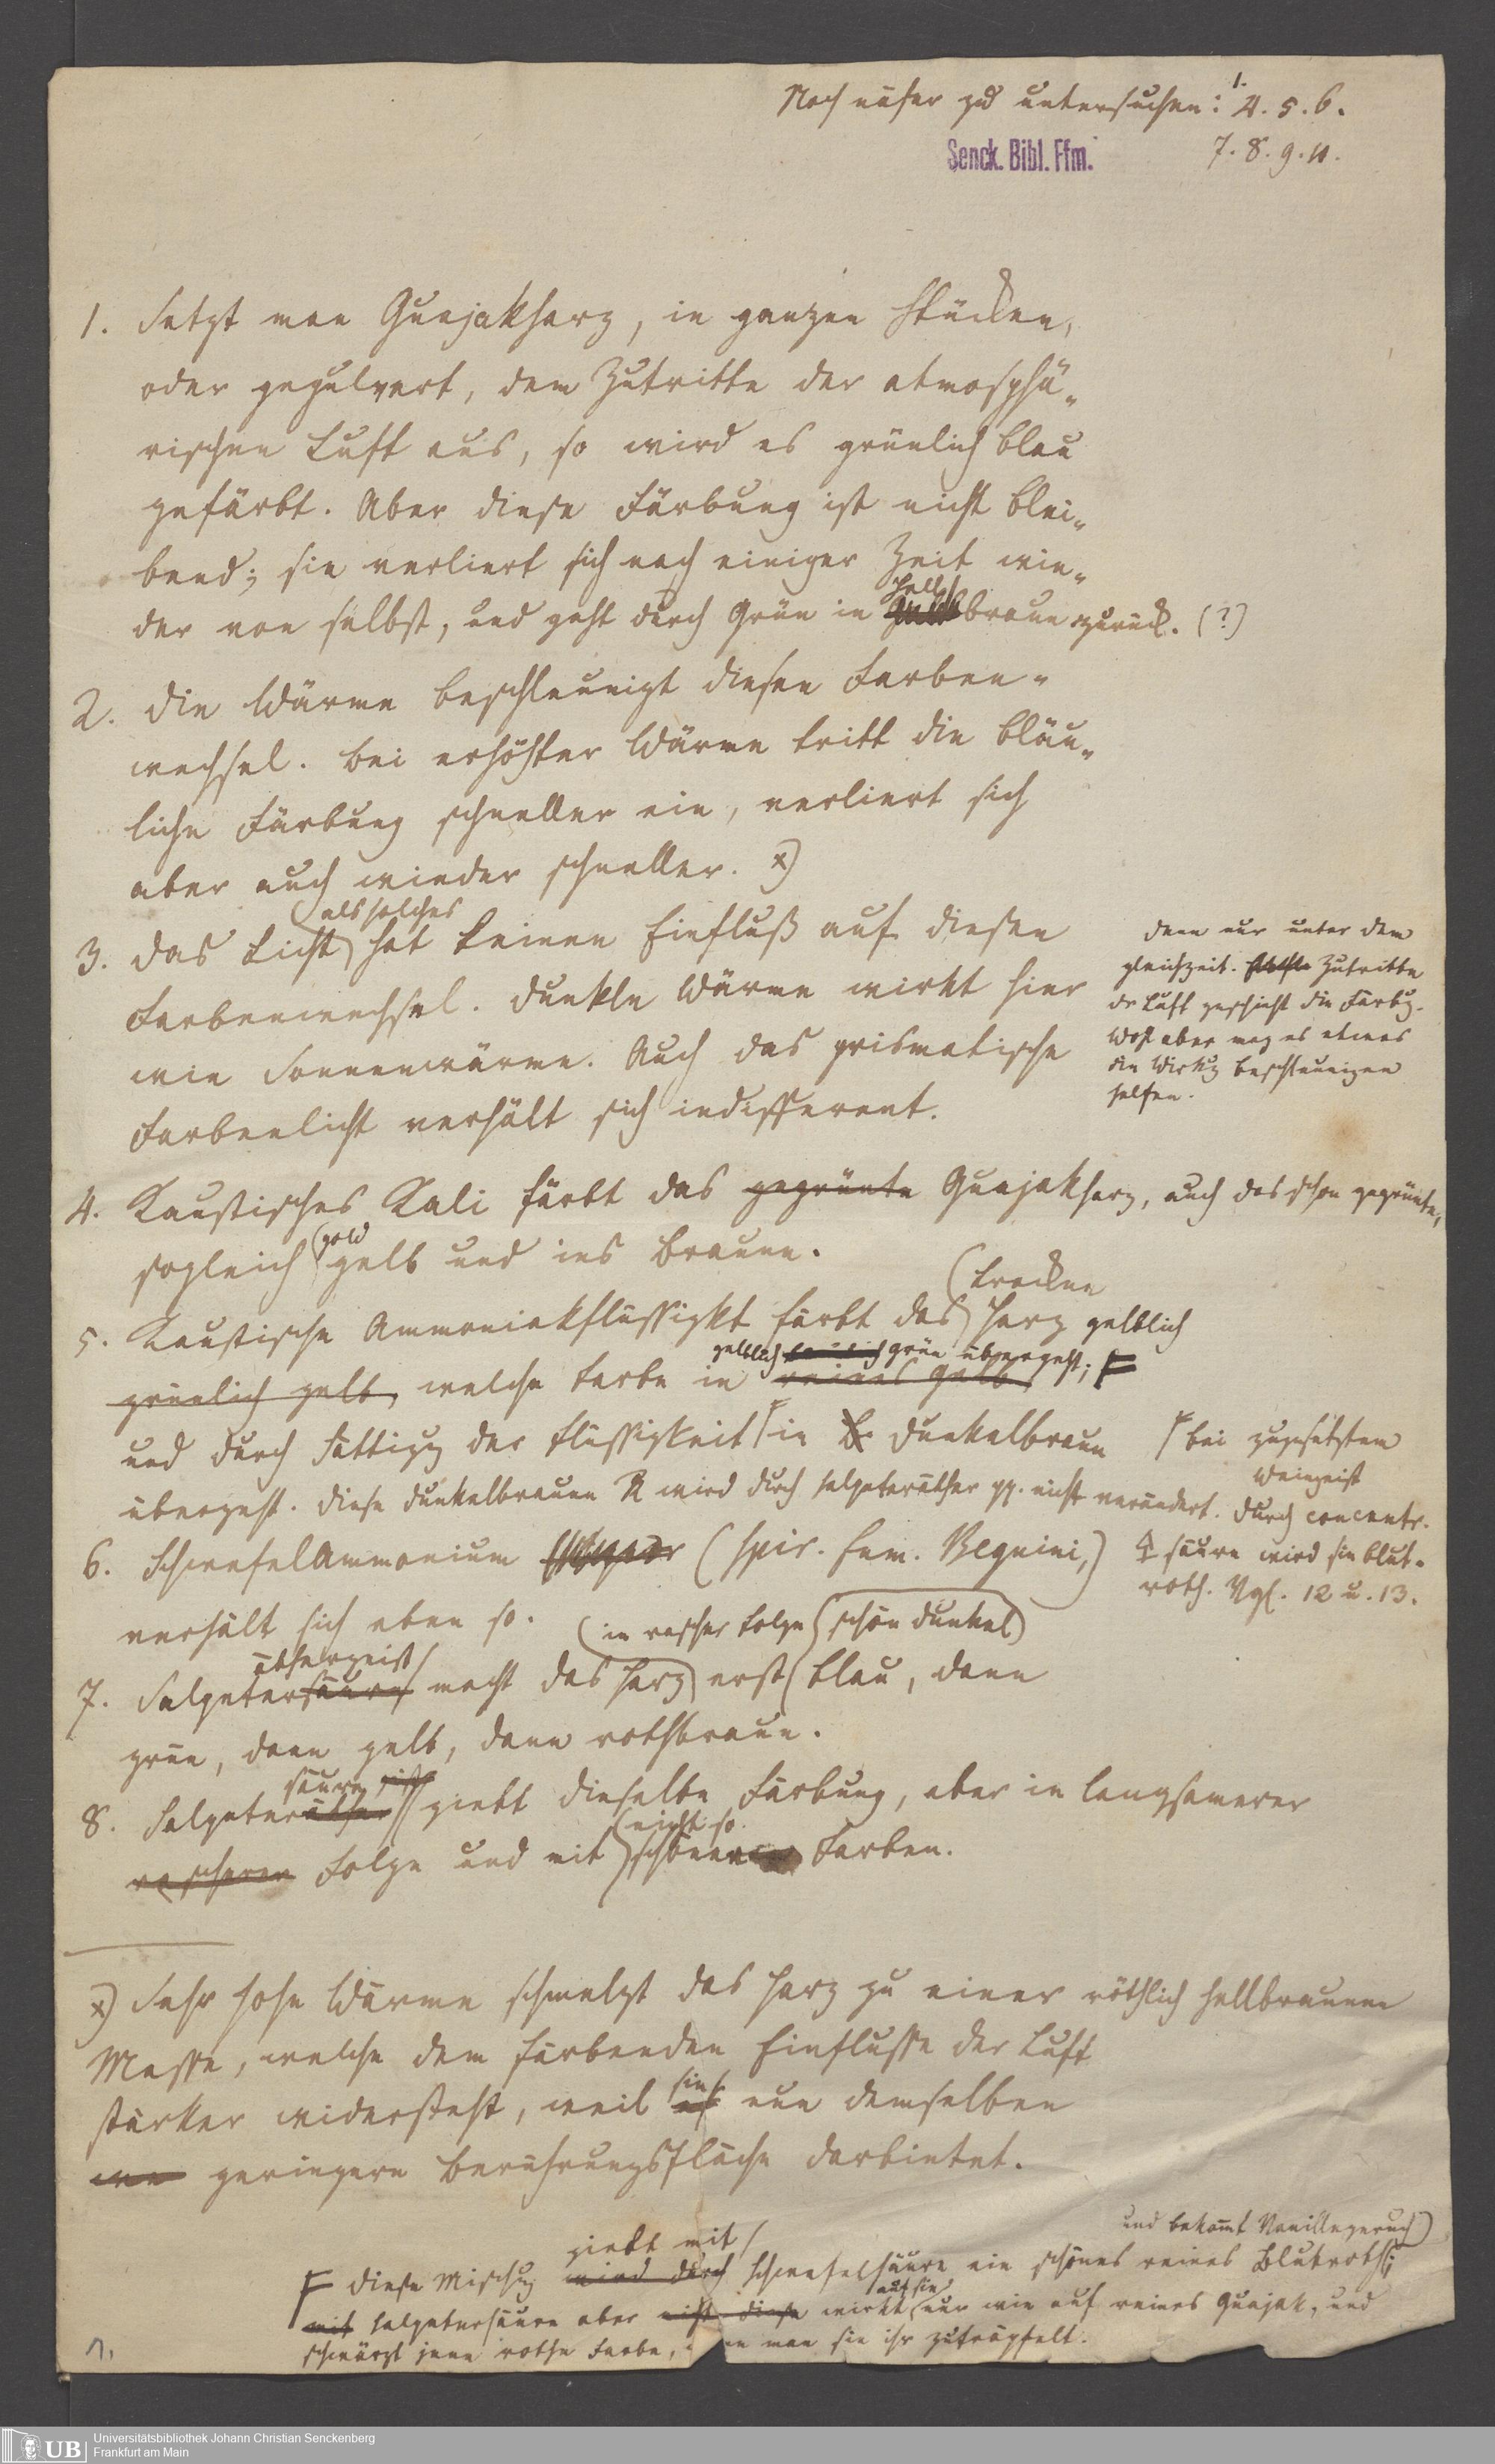 Noch näher zu untersuchen: 1. 4. 5. 6.
7. 8. 9. 11.
Senck. Bibl. Ffm.
1. Setzt man Guajakharz, in ganzen Stücken,
oder gepulvert, dem Zutritte der atmosphä-
rischen Luft aus, so wird es grünlich blau
gefärbt. Aber diese Färbung ist nicht blei-
bend; sie verliert sich nach einiger Zeit wie-
hell
der von selbst, und geht durch Grün in braun zurück. (?)
2. Die Wärme beschleunigt diesen Farben-
wechsel. Bei erhöhter Wärme tritt die bläu-
liche Färbung schneller ein, verliert sich
aber auch wieder schneller. x)
als solches
3. Das Licht hat keinen Einfluß auf diesen
Farbenwechsel. Dunkle Wärme wirkt hier
wie Sonnenwärme. Auch das prismatische
Farbenlicht verhält sich indifferent.
denn nur unter dem
gleichzeit. Zutritte
der Luft geschieht die Färbg.
Wohl aber mag es etwas
die Wirkg beschleunigen
helfen.
4. Kaustisches Kali färbt das gegrünte Guajakharz, auch das schon gegrünte,
gold
sogleich gelb und ins Braune.
trockne
5. Kaustische Ammoniakflüssigkt färbt das Harz gelblich
gelblich grün übergeht; F
grünlich gelb, welche Farbe in reines Gelb
und durch Sättigg der Flüssigkeit in Dunkelbraun
übergeht. Diese dunkelbraune wird durch Salpeteräther pp. nicht verändert. Durch concentr.
bei zugesetztem
Weingeist
säure wird sie blut-
roth. Vgl. 12 u. 13.
6. SchwefelAmmonium (Spir. fum. Beguini,)
verhält sich eben so.
in rascher Folge schön dunkel
äthergeist
7. Salpetersäure macht das Harz erst blau, dann
grün, dann gelb, dann rothbraun.
säure
8. Salpeteräther giebt dieselbe Färbung, aber in langsamerer
nicht so
rascherer Folge und mit schönen Farben.
x) Sehr hohe Wärme schmelzt das Harz zu einer röthlich hellbraunen
Masse, welche dem färbenden Einflusse der Luft
sie
stärker widersteht, weil es nun demselben
geringere Berührungsfläche darbietet.
und bekommt Vanillegeruch)
giebt mit
F Diese Mischg wird durch Schwefelsäure ein schönes reines Blutroth;
auf sie
mit Salpetersäure aber wirkt nur wie auf reines Guajak, und
schwärzt jene rothe Farbe, man sie ihr zuträpfelt.
1.
UB
Universitätsbibliothek Johann Christian Senckenberg
Frankfurt am Main